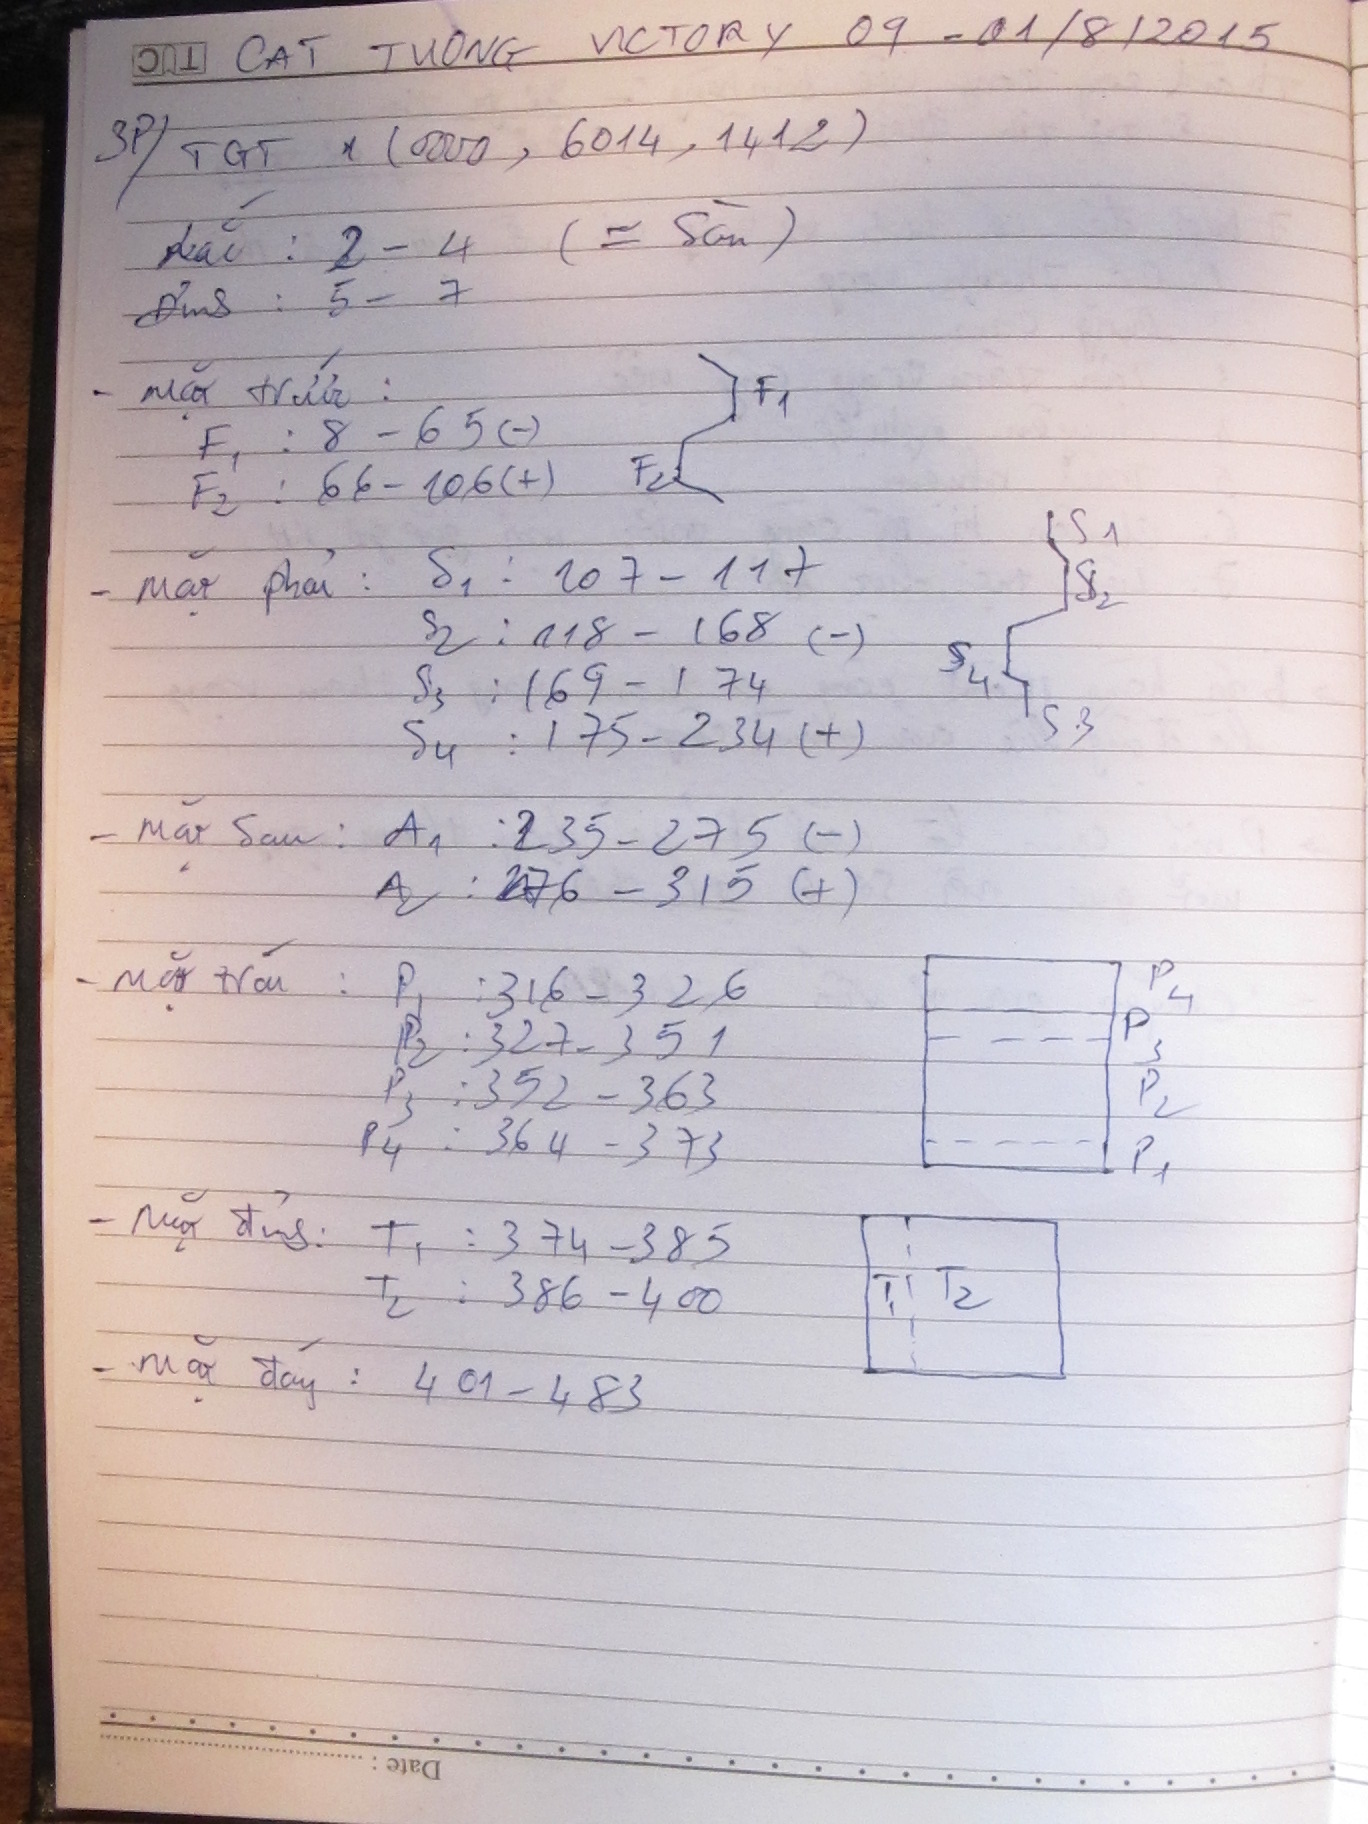 CAT TUONG VICTORY 09 - 01/8/2015
3P/ TGT x (0000, 6014, 1412)
đáy : 2 - 4 (= Sàn)
đỉnh : 5 - 7
- Mặt trước :
F1 : 8 - 65 (-)
F1
F2 : 66 - 106 (+)
F2
- Mặt phải : S1 : 107 - 117
S1
S2 : 118 - 168 (-)
S2
S3 : 169 - 174
S4
S4 : 175 - 234 (+)
S3
- Mặt Sau : A1 : 235 - 275 (-)
A2 : 276 - 315 (+)
- Mặt trái : P1 : 316 - 326
P4
P2 : 327 - 351
P3
P3 : 352 - 363
P2
P4 : 364 - 373
P1
- Mặt đỉnh : T1 : 374 - 385
T2 : 386 - 400
T1 T2
- Mặt đáy : 401 - 483
Date :